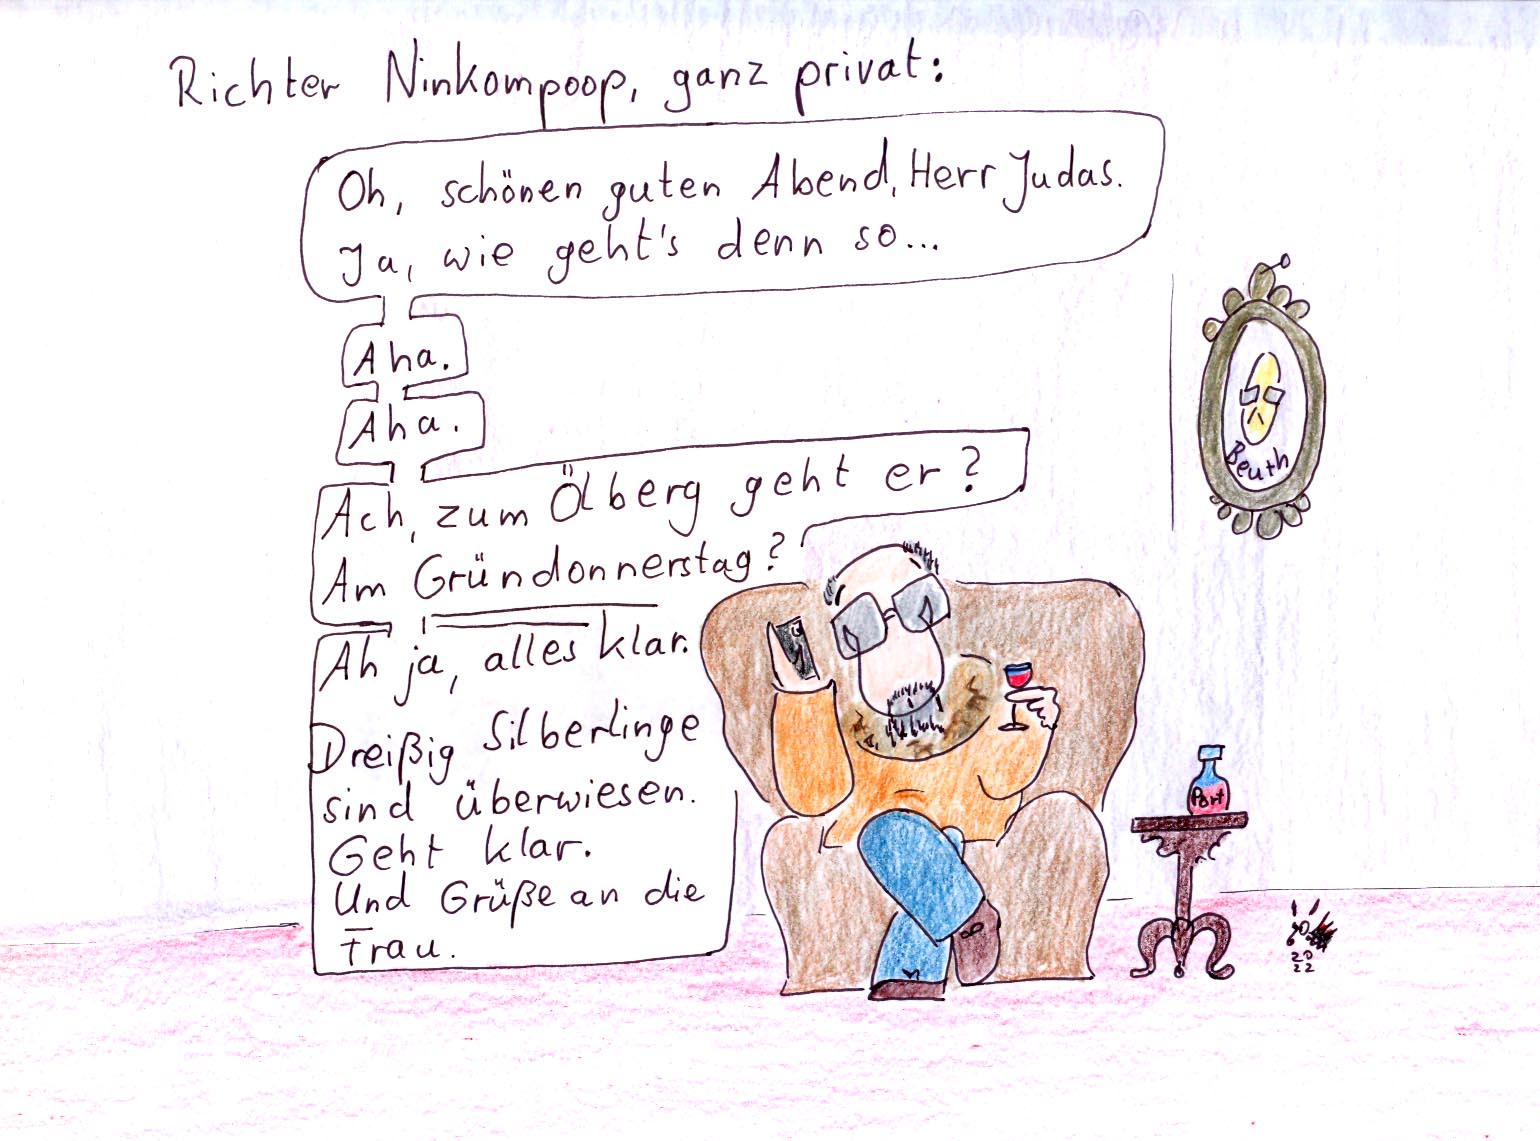 Richter Ninkompoop, ganz privat:
Oh, schönen guten Abend, Herr Judas.
Ja, wie geht's denn so...
Aha.
Aha.
Ach, zum Ölberg geht er?
Am Gründonnerstag?
Ah ja, alles klar.
Dreißig Silberlinge
sind überwiesen.
Geht klar.
Und Grüße an die
Frau.
Beuth
Port
20
22